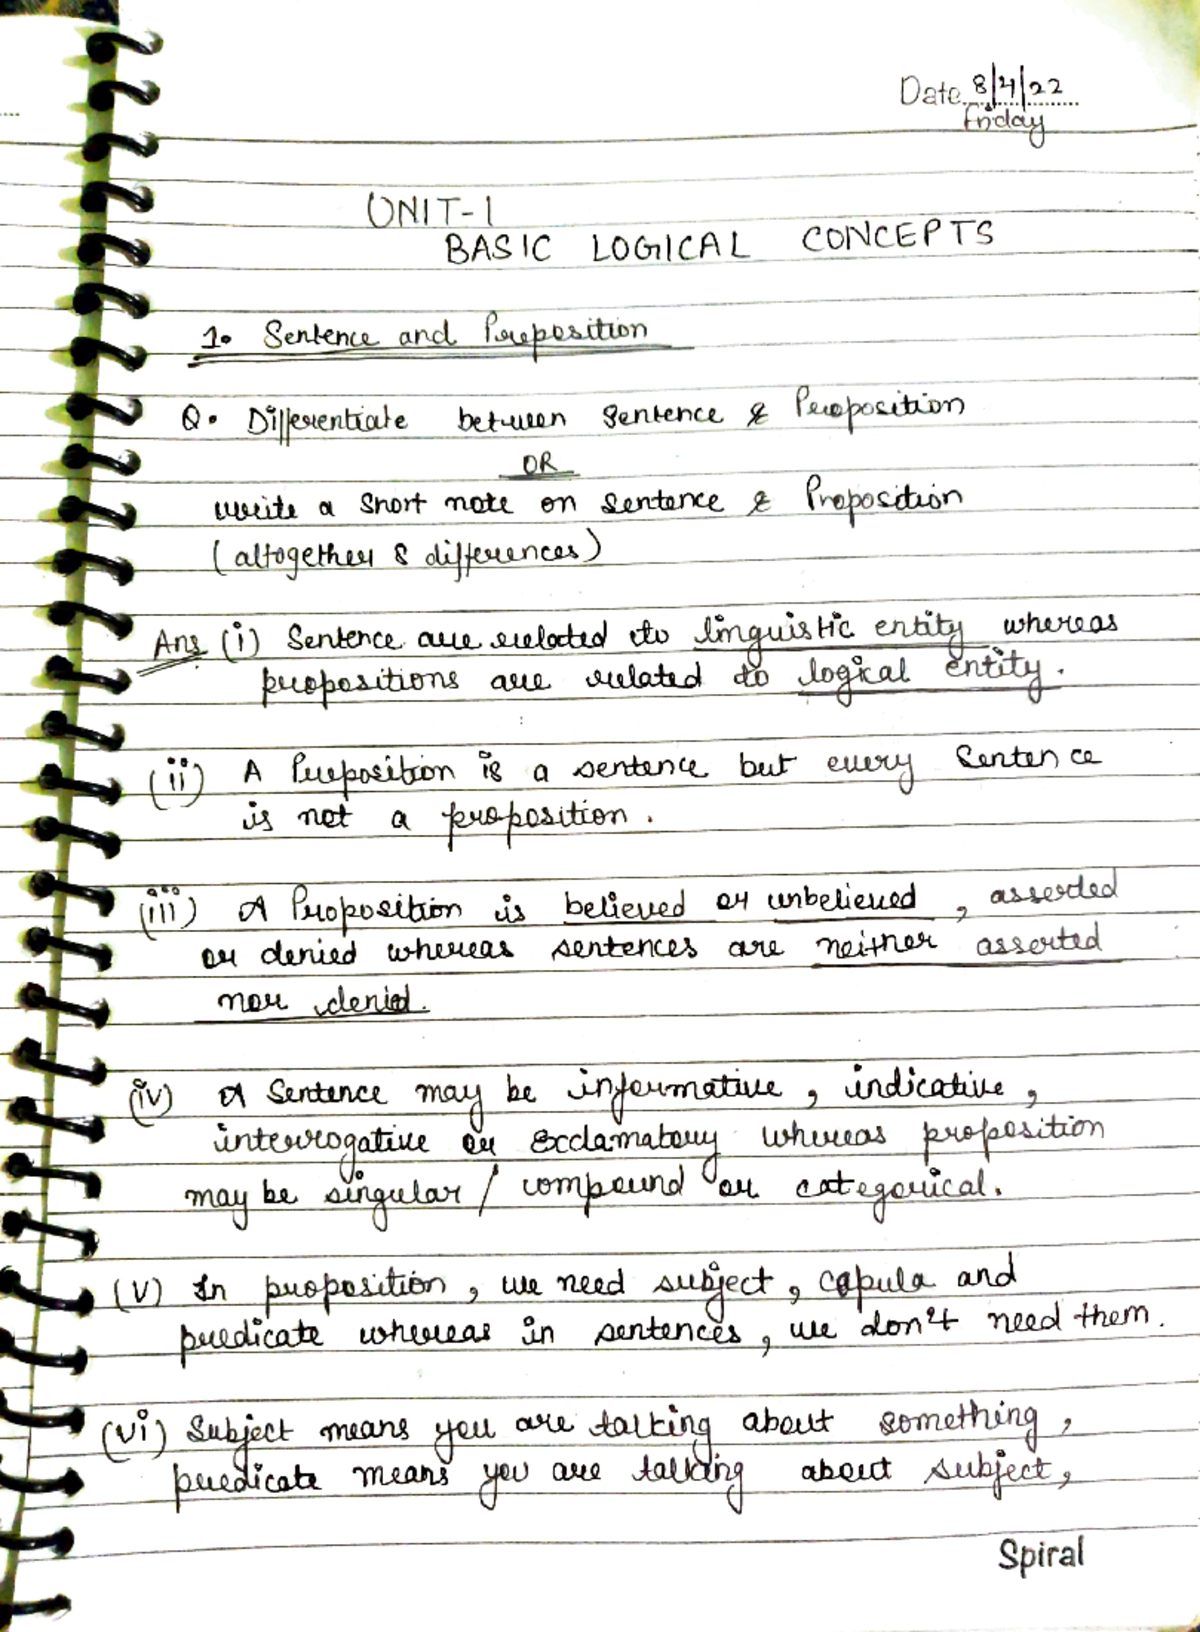 Date 8/4/22
Friday
UNIT-1
BASIC LOGICAL CONCEPTS
1. Sentence and Preposition
Q. Differentiate between Sentence & Preposition
OR
write a Short note on Sentence & Proposition
(altogether 8 differences)
Ans (i) Sentence are related to linguistic entity whereas
propositions are related to logical entity.
(ii) A Preposition is a sentence but every Sentence
is not a proposition.
(iii) A Proposition is believed or unbelieved, asserted
or denied whereas sentences are neither asserted
nor denied.
(iv) A Sentence may be informative, indicative,
interrogative or Exclamatory whereas proposition
may be singular / compound or categorical.
(v) In proposition, we need subject, copula and
predicate whereas in sentences, we don't need them.
(vi) Subject means you are talking about something,
predicate means you are talking about subject,
Spiral